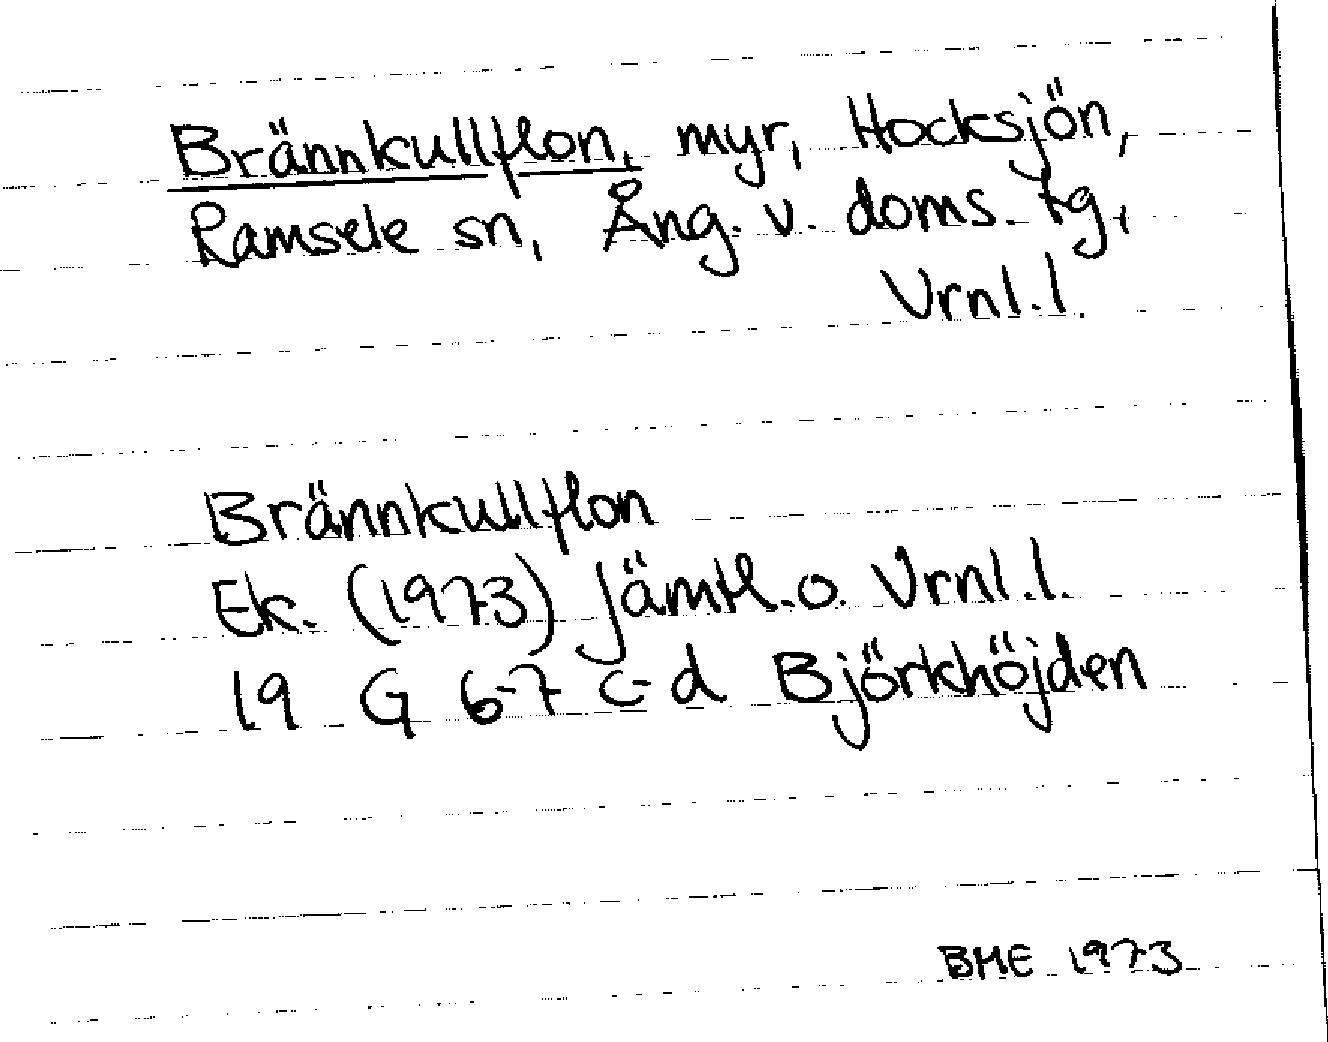 Brännkullflon, myr, Hocksjön,
Ramsele sn, Ång. v. doms. tg,
Vrnl. l.
Brännkullflon
Ek. (1973) Jämtl. o. Vrnl. l.
19 G 6-7 c-d Björkhöjden
BME 1973